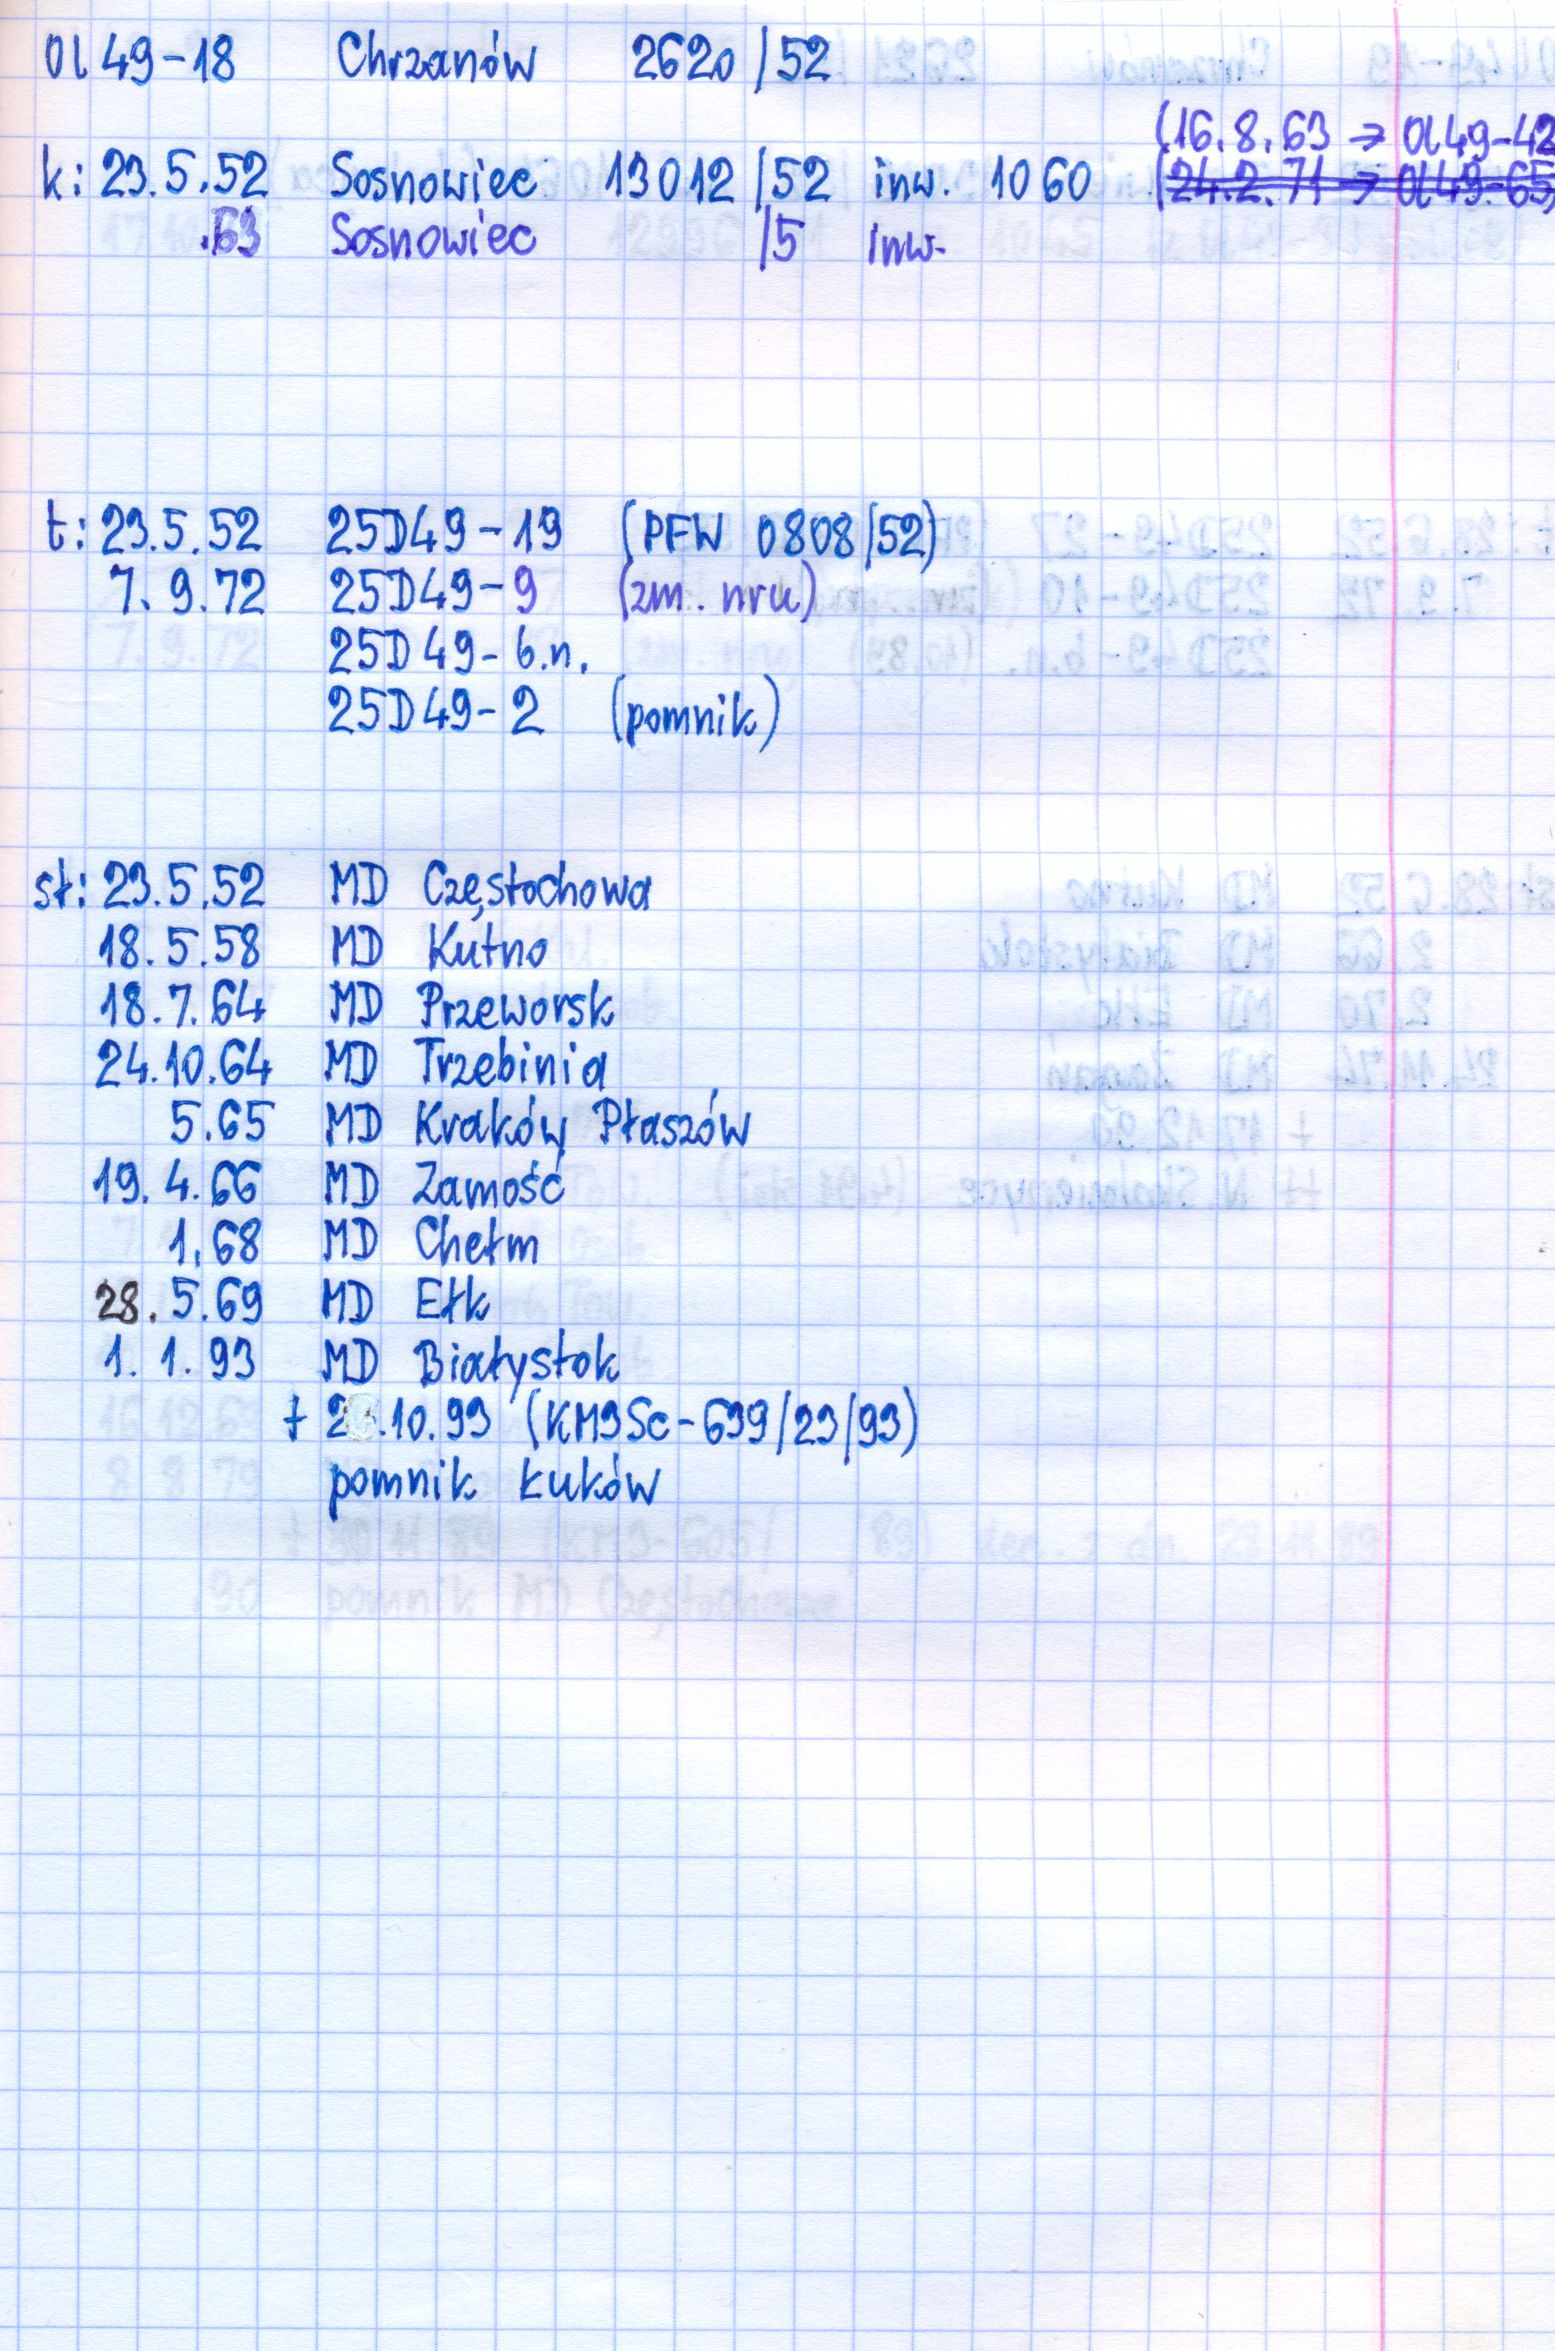 Ol 49-18 Chrzanów 2620/52
(16.8.63 → Ol49-42
k: 23.5.52 Sosnowiec 13012/52 inw. 1060 (24.2.71 → Ol49-65)
.63 Sosnowiec /5 inw.
t: 23.5.52 25D49-19 (PFW 0808/52)
7. 9.72 25D49-9 (zm. nru)
25D49-b.n.
25D49-2 (pomnik)
st: 23.5.52 MD Częstochowa
18.5.58 MD Kutno
18.7.64 MD Przeworsk
24.10.64 MD Trzebinia
5.65 MD Kraków Płaszów
19.4.66 MD Zamość
1.68 MD Chełm
28.5.69 MD Ełk
1.1.93 MD Białystok
+ .10.93 (KM9Sc-699/23/93)
pomnik Łuków